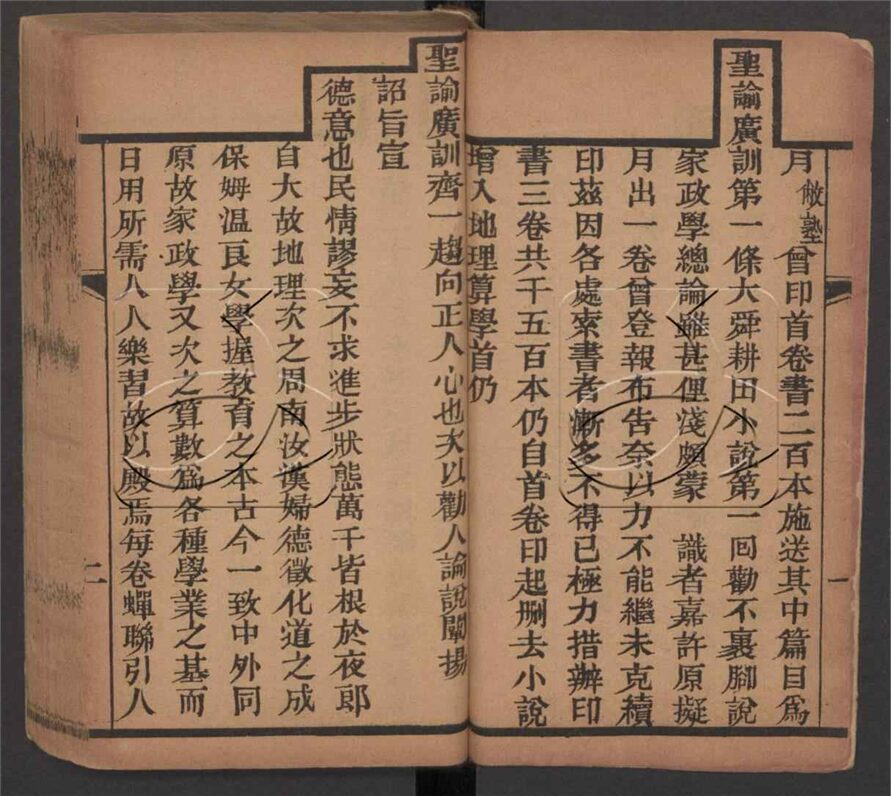 月敝塾曾印首卷書二百本施送其中篇目爲
聖諭廣訓第一條大舜耕田小說第一回勸不裹腳說
家政學總論雖甚俚淺頗蒙 識者嘉許原擬
月出一卷曾登報布告奈以力不能繼未克續
印茲因各處索書者漸多不得已極力措辦印
書三卷共千五百本仍自首卷印起刪去小說
增入地理算學首仍
聖諭廣訓齊一趨向正人心也次以勸人論說闡揚
詔旨宣
德意也民情謬妄不求進步狀態萬千皆根於夜郎
自大故地理次之周南汝漢婦德徵化道之成
保姆溫良女學握教育之本古今一致中外同
原故家政學又次之算數爲各種學業之基而
日用所需人人樂習故以殿焉每卷蟬聯引人
一
二